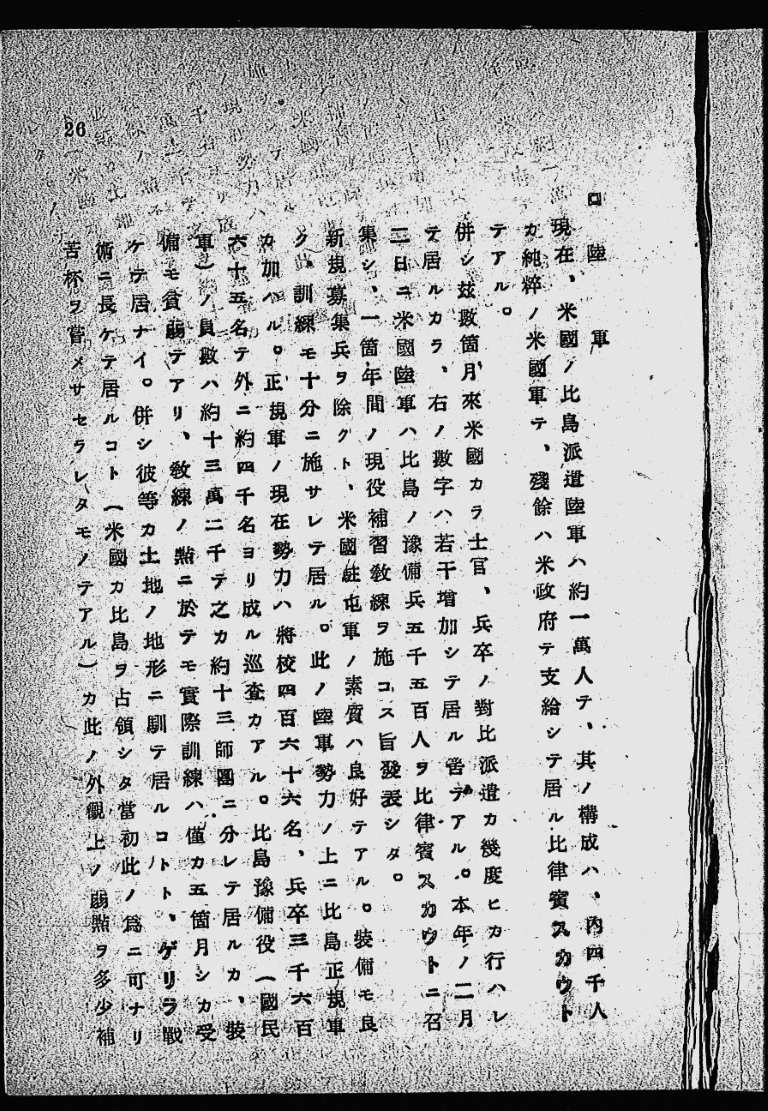 26
ロ 陸軍
現在、米國ノ比島派遣陸軍ハ約一萬人テ、其ノ構成ハ、內四千人
カ純粹ノ米國軍テ、殘餘ハ米政府テ支給シテ居ル比律賓スカウト
テアル。
併シ玆數箇月來米國カラ士官、兵卒ノ對比派遣カ幾度ヒカ行ハレ
テ居ルカラ、右ノ數字ハ若干增加シテ居ル筈テアル。本年ノ二月
二日ニ米國陸軍ハ比島ノ豫備兵五千五百人ヲ比律賓スカウトニ召
集シ、一箇年間ノ現役補習敎練ヲ施コス旨發表シタ。
新規募集兵ヲ除クト、米國駐屯軍ノ素質ハ良好テアル。裝備モ良
ク、訓練モ十分ニ施サレテ居ル。此ノ陸軍勢力ノ上ニ比島正規軍
カ加ハル。正規軍ノ現在勢力ハ將校四百六十六名、兵卒三千六百
六十五名テ外ニ約四千名ヨリ成ル巡査カアル。比島豫備役（國民
軍）ノ員數ハ約十三萬二千テ之カ約十三師團ニ分レテ居ルカ、裝
備モ貧弱テアリ、敎練ノ點ニ於テモ實際訓練ハ僅カ五箇月シカ受
ケテ居ナイ。併シ彼等カ土地ノ地形ニ馴テ居ルコトト、ゲリラ戰
術ニ長ケテ居ルコト（米國カ比島ヲ占領シタ當初此ノ爲ニ可ナリ
苦杯ヲ嘗メサセラレタモノテアル）カ此ノ外觀上ノ弱點ヲ多少補